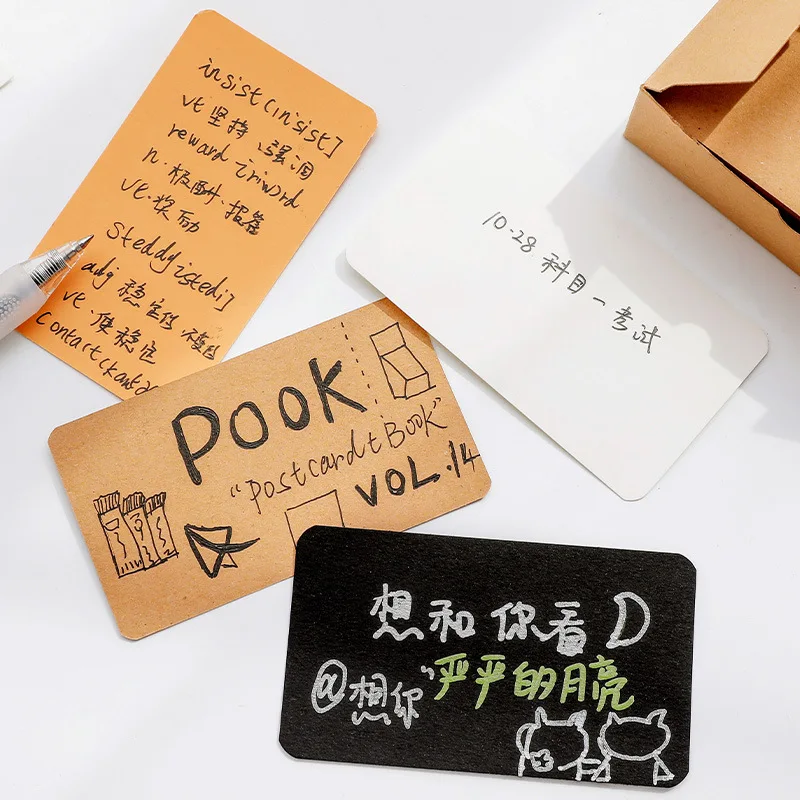 insist[in'sist]
vt 坚持、强调
reward [riword
n. 报酬·报答
vt·奖励
steddy[stedi]
adj 稳定的 不变的
vt·使稳定
Contact(kanta
10·28 科目一考试
POOK
"Postcard+Book"
VOL.14
想和你看
@想你"严严的月亮